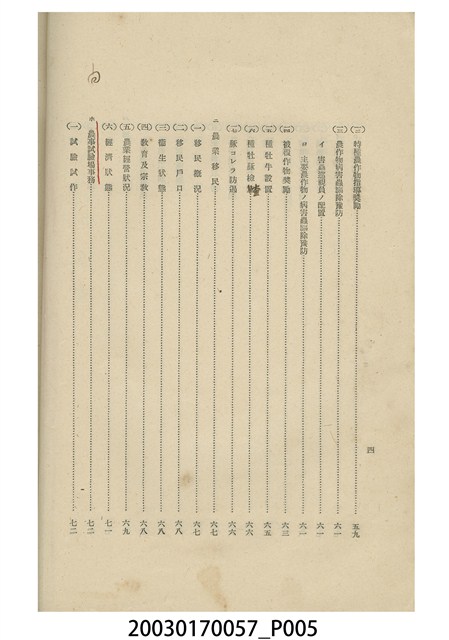 (二) 特種農作物指導奬勵 五九
(三) 農作物病害蟲驅除豫防 六一
イ 害蟲監視員ノ配置 六一
ロ 主要農作物ノ病害蟲驅除豫防 六一
(四) 被服作物奬勵 六三
(五) 種牡牛設置 六五
(六) 種牡豚檢 六六
(七) 豚コレラ防遏 六六
ニ 農業移民 六七
(一) 移民概況 六七
(二) 移民戶口 六八
(三) 衞生狀態 六八
(四) 敎育及宗敎 六八
(五) 農業經營狀況 六九
(六) 經濟狀態 七一
ホ 農事試驗場事務 七二
(一) 試驗試作 七二
四
20030170057_P005